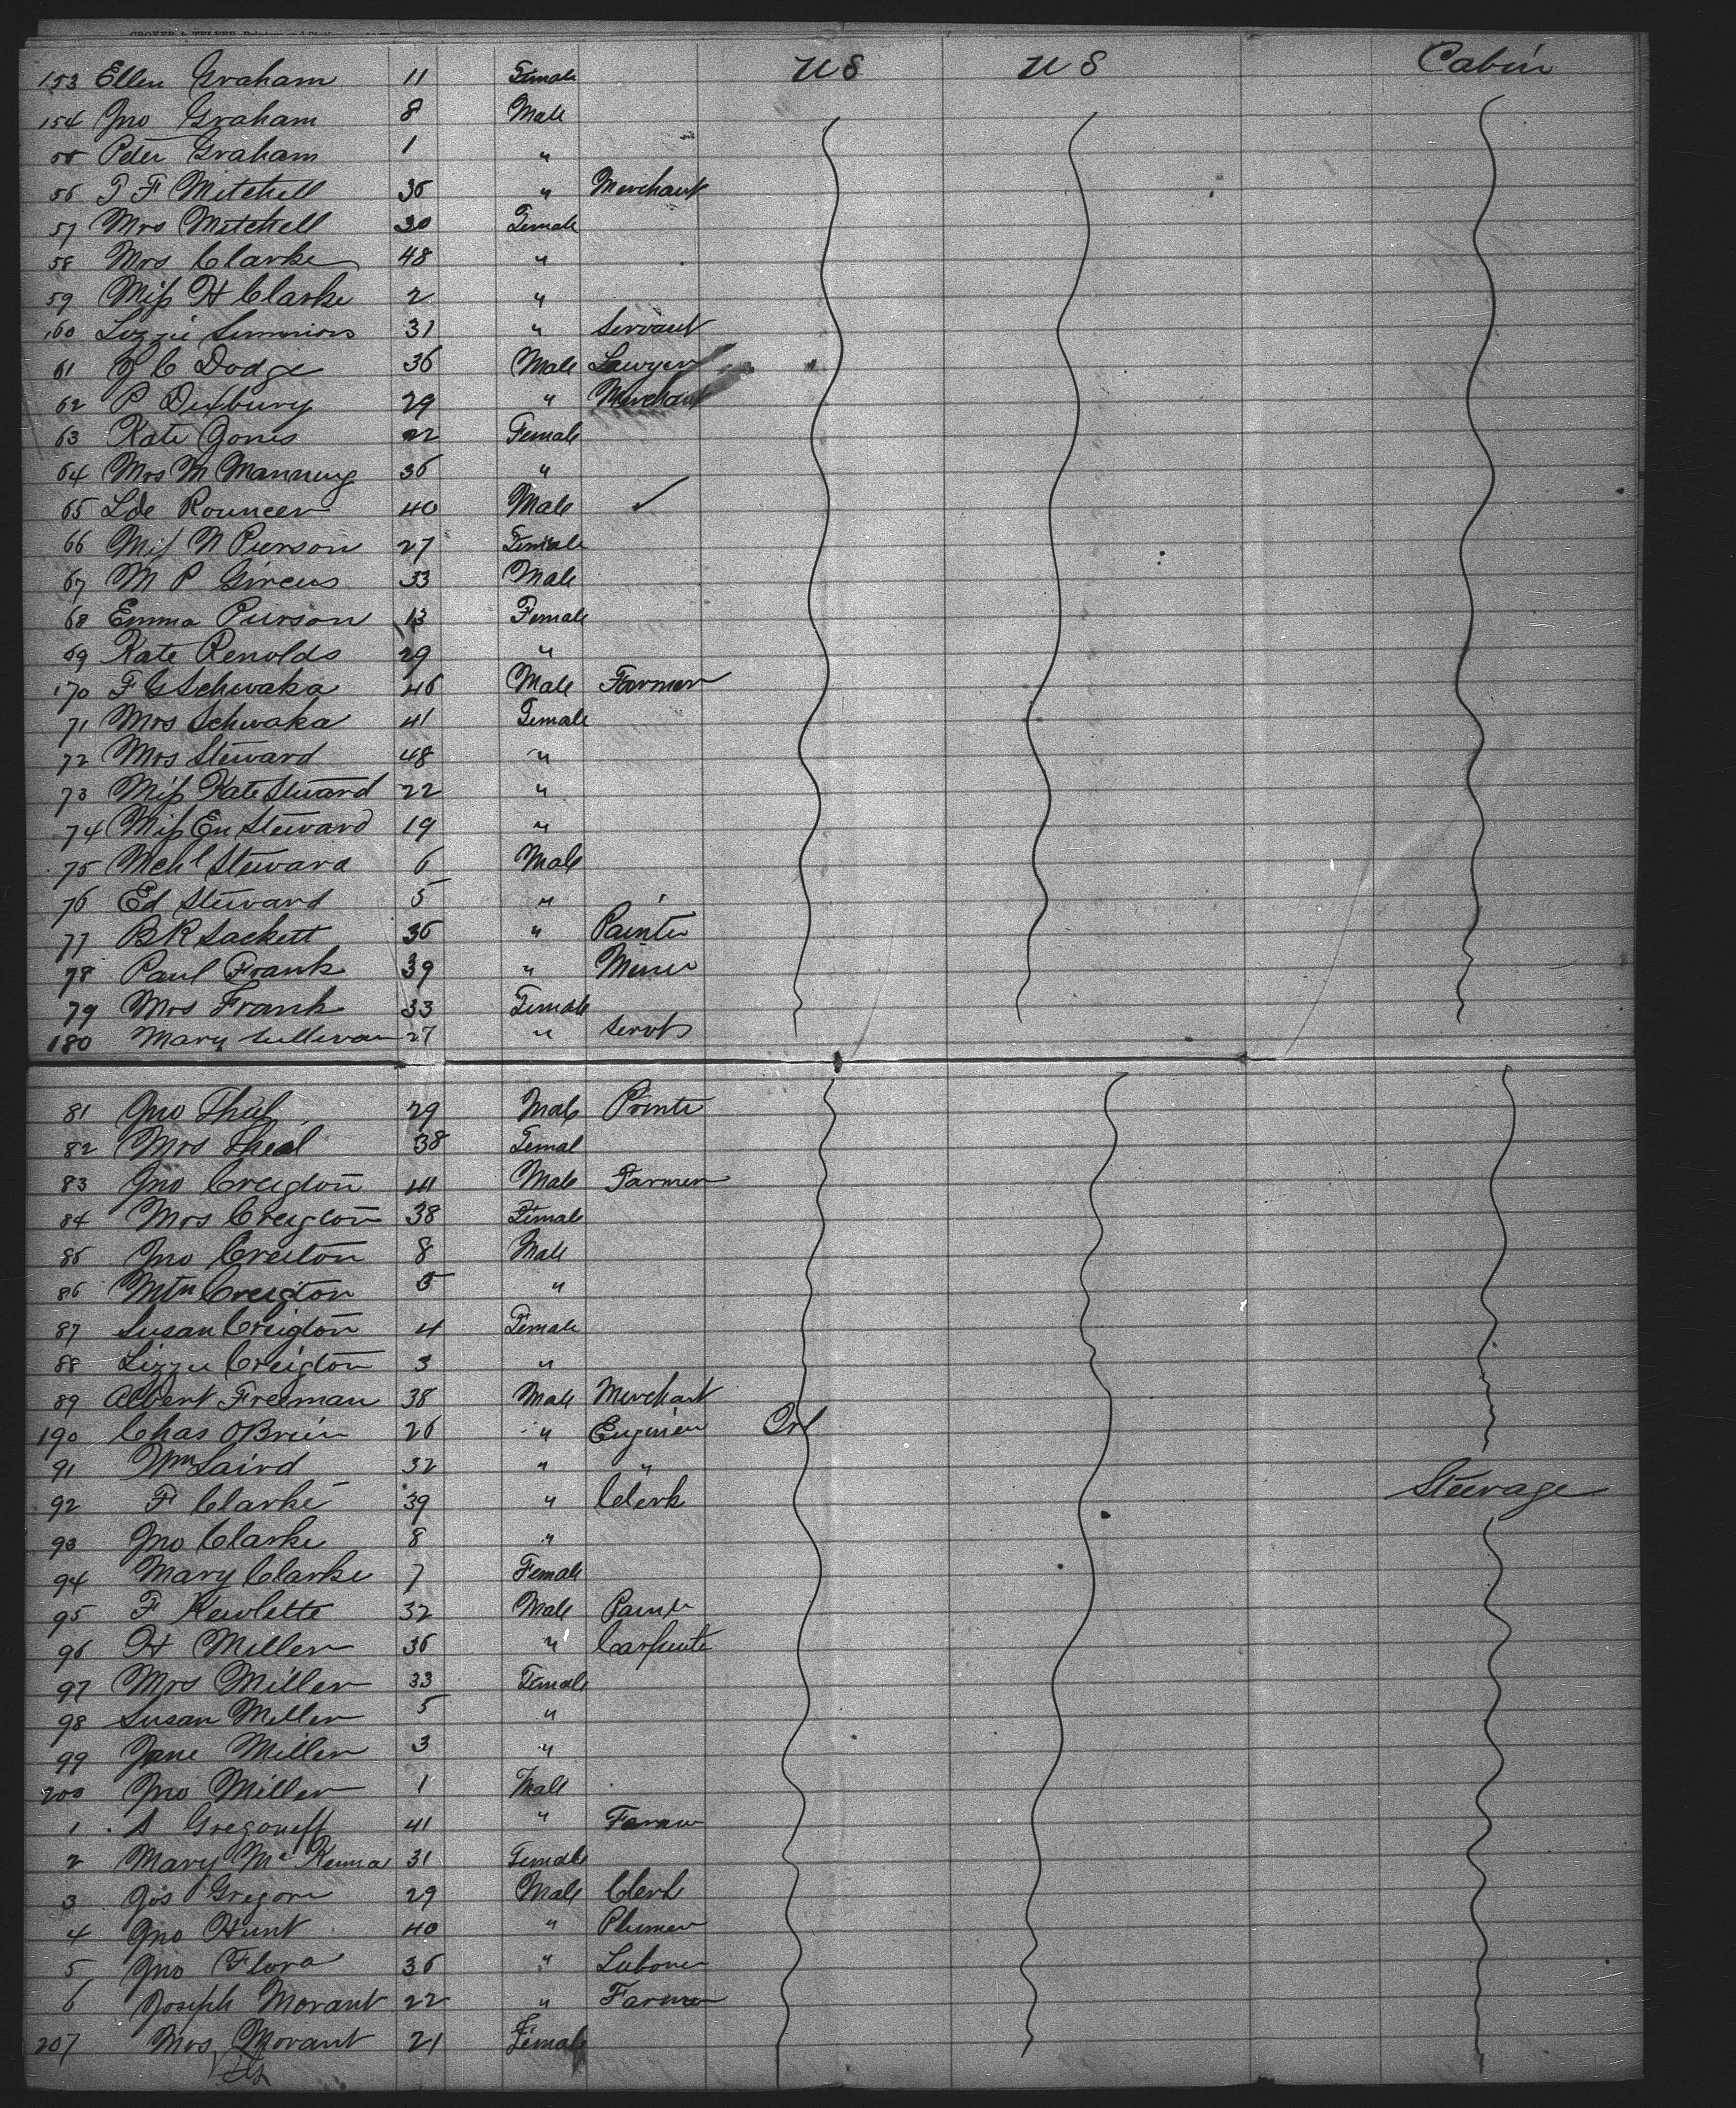 153 Ellen Graham 11 Female U S U S Cabin
154 Jno Graham 8 Male
55 Peter Graham 1 "
56 T F Mitchell 36 " Merchant
57 Mrs Mitchell 30 Female
58 Mrs Clarke 48 "
59 Miss H Clarke 2 "
160 Lizzie Simmions 31 " Servant
61 J C Dodge 36 Male Lawyer
62 P Duxbury 29 " Merchant
63 Kate Jones 22 Female
64 Mrs M Manning 36 "
65 Lde Rouncer 40 Male ✓
66 Miss N Pierson 27 Female
67 M P Gircus 33 Male
68 Emma Pierson 13 Female
69 Kate Renolds 29 "
170 F G Schwaka 46 Male Farmer
71 Mrs Schwaka 41 Female
72 Mrs Steward 48 "
73 Miss Kate Steward 22 "
74 Miss Em Steward 19 "
75 Mchl Steward 6 Male
76 Ed Steward 5 "
77 B R Sackett 36 " Painter
78 Paul Frank 39 " Miner
79 Mrs Frank 33 Female
180 Mary Sullivan 27 " Servt
81 Jno Theel 29 Male
82 Mrs Theal 38 Femal
83 Jno Creigton 41 Male Farmer
84 Mrs Creigton 38 Female
85 Jno Creiton 8 Male
86 Mtn Creigton 5 "
87 Susan Creigton 4 Female
88 Lizzie Creigton 3 "
89 Albert Freeman 38 Male Merchant
190 Chas OBrien 26 " Engineer
91 Wm Laird 32 " "
92 F Clarke 39 " Clerk Steerage
93 Jno Clarke 8 "
94 Mary Clarke 7 Female
95 F Kewlette 32 Male Painter
96 H Miller 36 " Carpente
97 Mrs Miller 33 Female
98 Susan Miller 5 "
99 Jane Miller 3 "
200 Jno Miller 1 Male
1 A 41 " Farmer
2 Mary McKenna 31 Female
3 Jos Gregory 29 Male Clerk
4 Jno Hunt 40 " Plumer
5 Jno Flora 36 " Laborer
6 Joseph Morant 22 " Farmer
207 Mrs Morant 21 Female